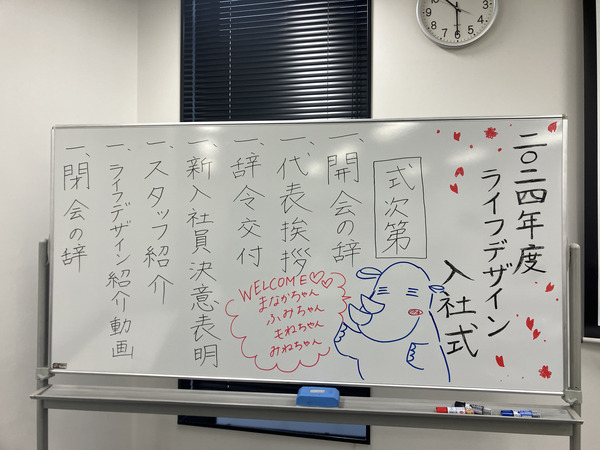 二〇二四年度
ライフデザイン
入社式
式次第
一、開会の辞
一、代表挨拶
一、辞令交付
一、新入社員決意表明
一、スタッフ紹介
一、ライフデザイン紹介動画
一、閉会の辞
WELCOME♡♡
まなかちゃん
ふみちゃん
もねちゃん
みねちゃん
10
11
1
2
3
4
5
6
7
8
9